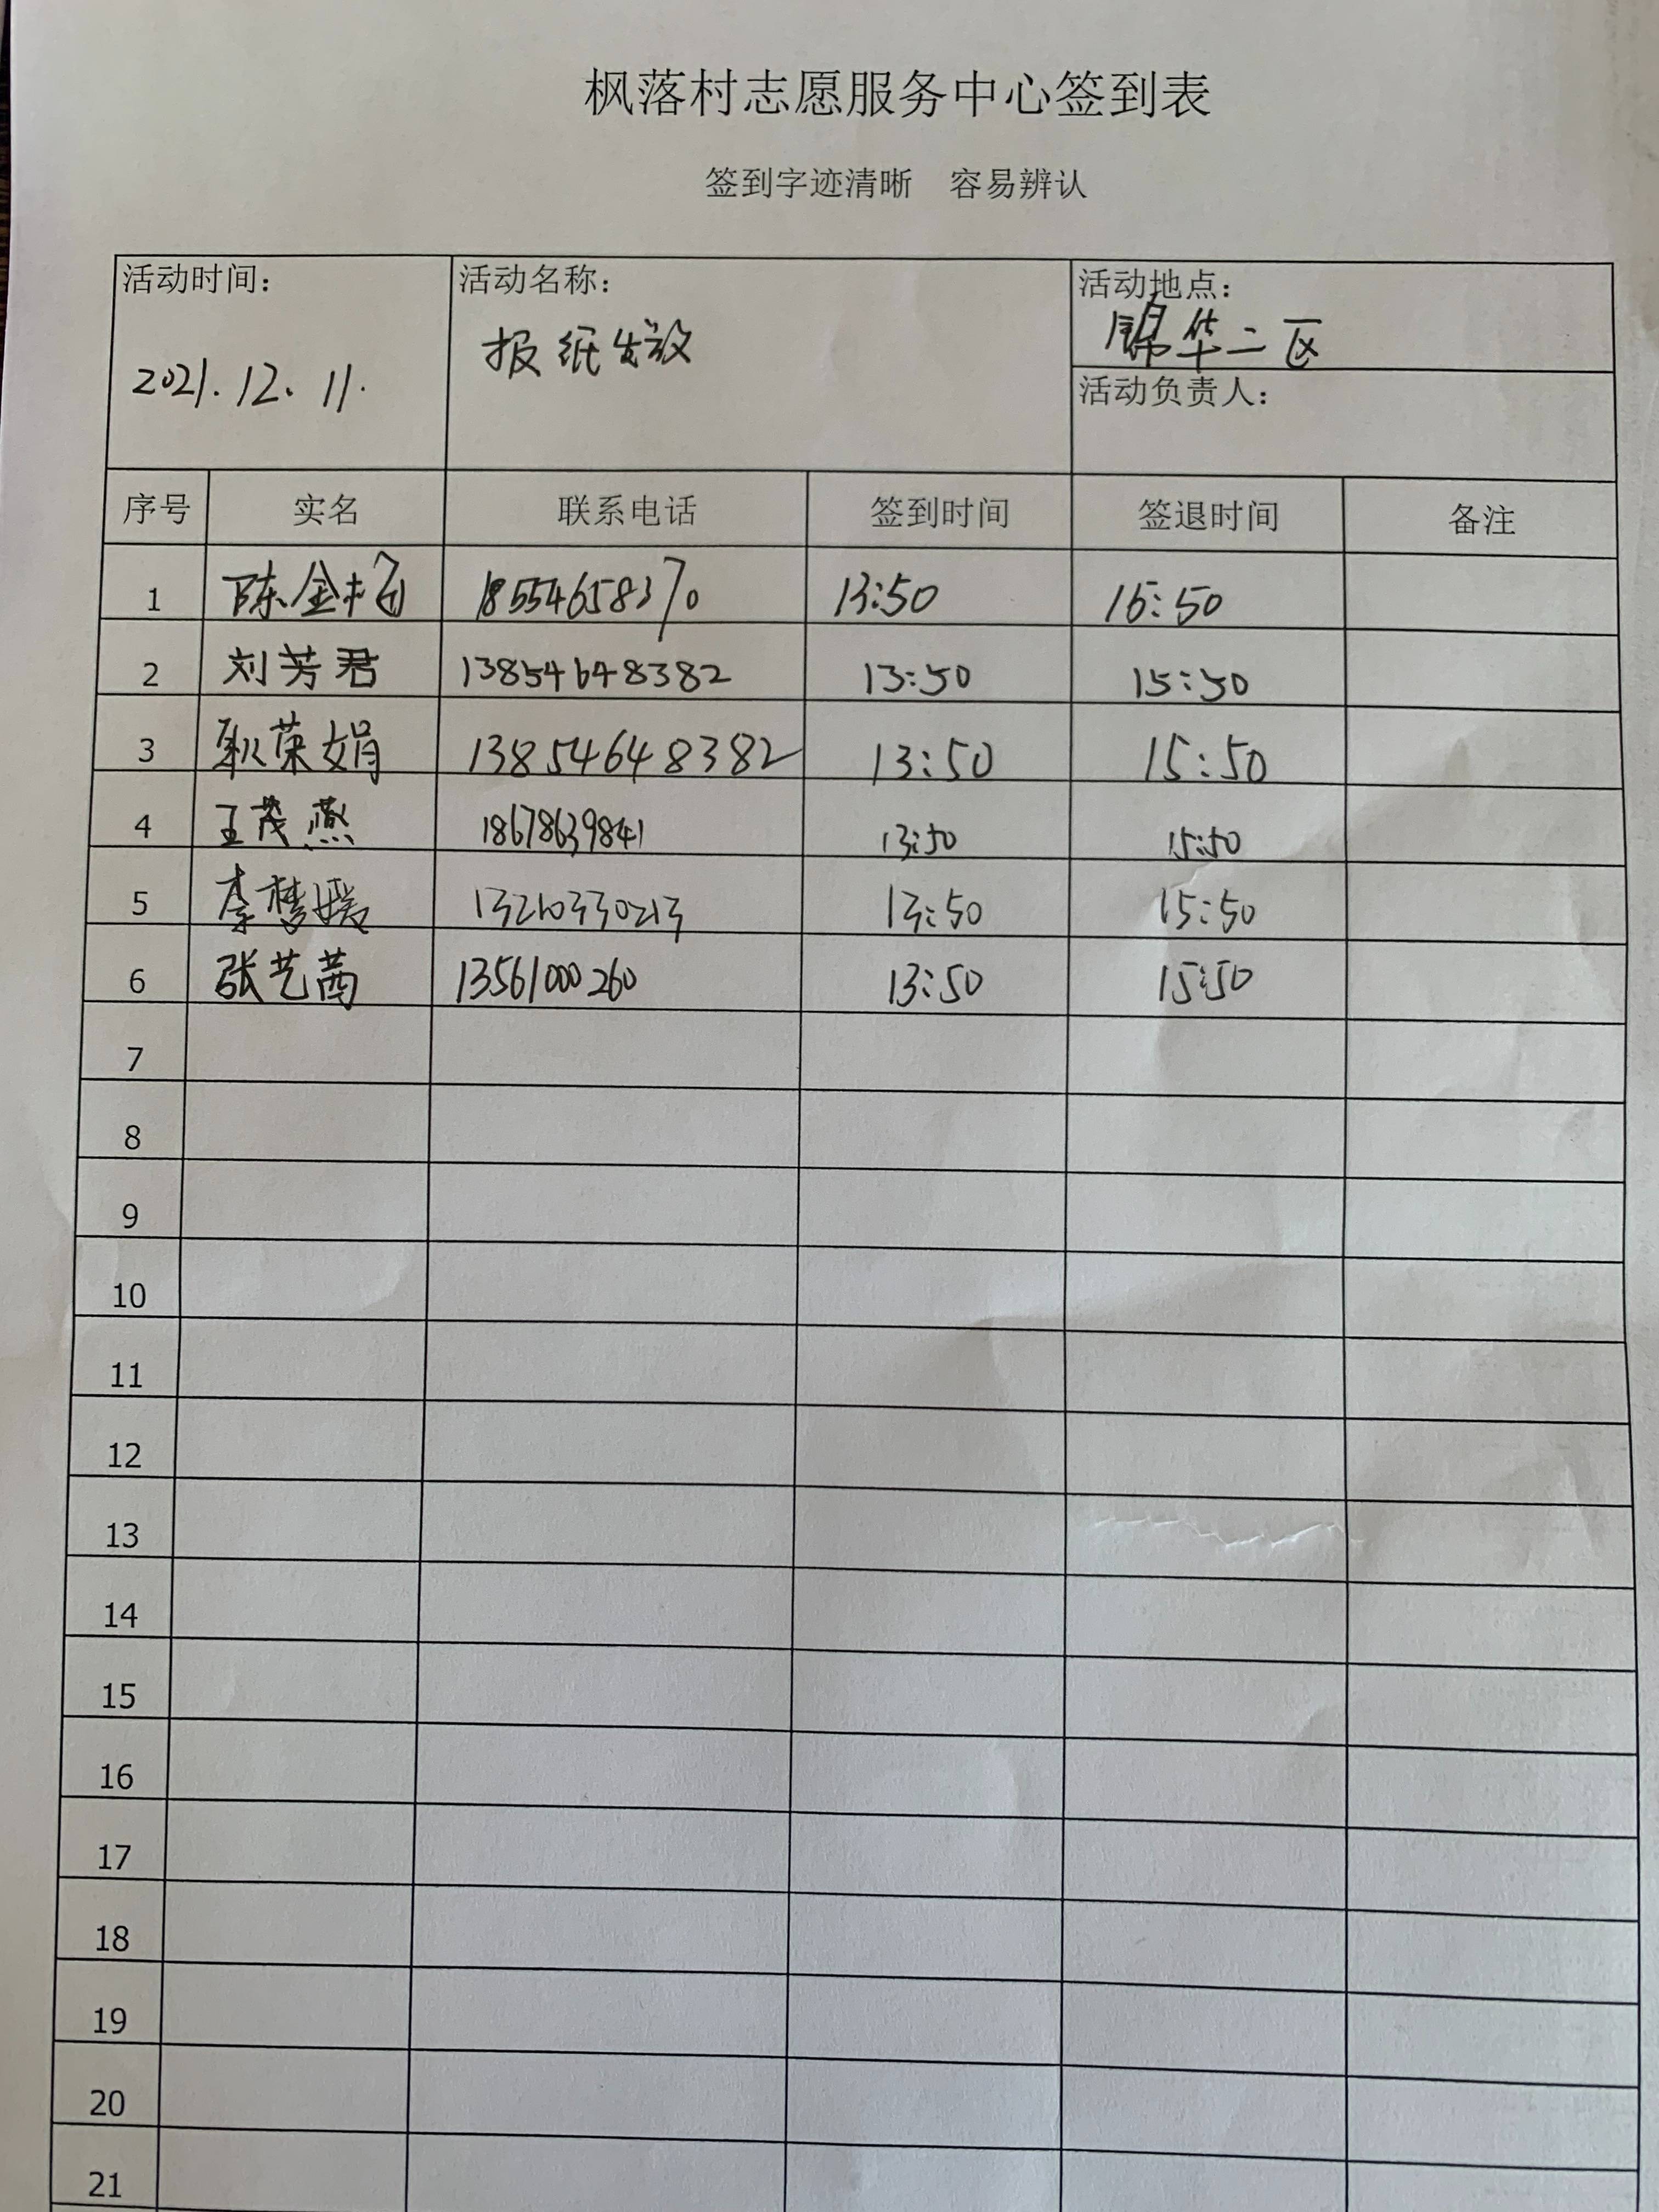 枫落村志愿服务中心签到表
签到字迹清晰 容易辨认
活动时间： 活动名称： 活动地点：
2021.12.11. 报纸发放 锦华二区
活动负责人：
序号 实名 联系电话 签到时间 签退时间 备注
1 陈金 18554658370 13:50 15:50
2 刘芳君 13854648382 13:50 15:50
3 耿荣娟 13854648382 13:50 15:50
4 王茂燕 18678639841 13:50 15:50
5 李梦媛 13210330213 13:50 15:50
6 张艺茜 13561000260 13:50 15:50
7
8
9
10
11
12
13
14
15
16
17
18
19
20
21